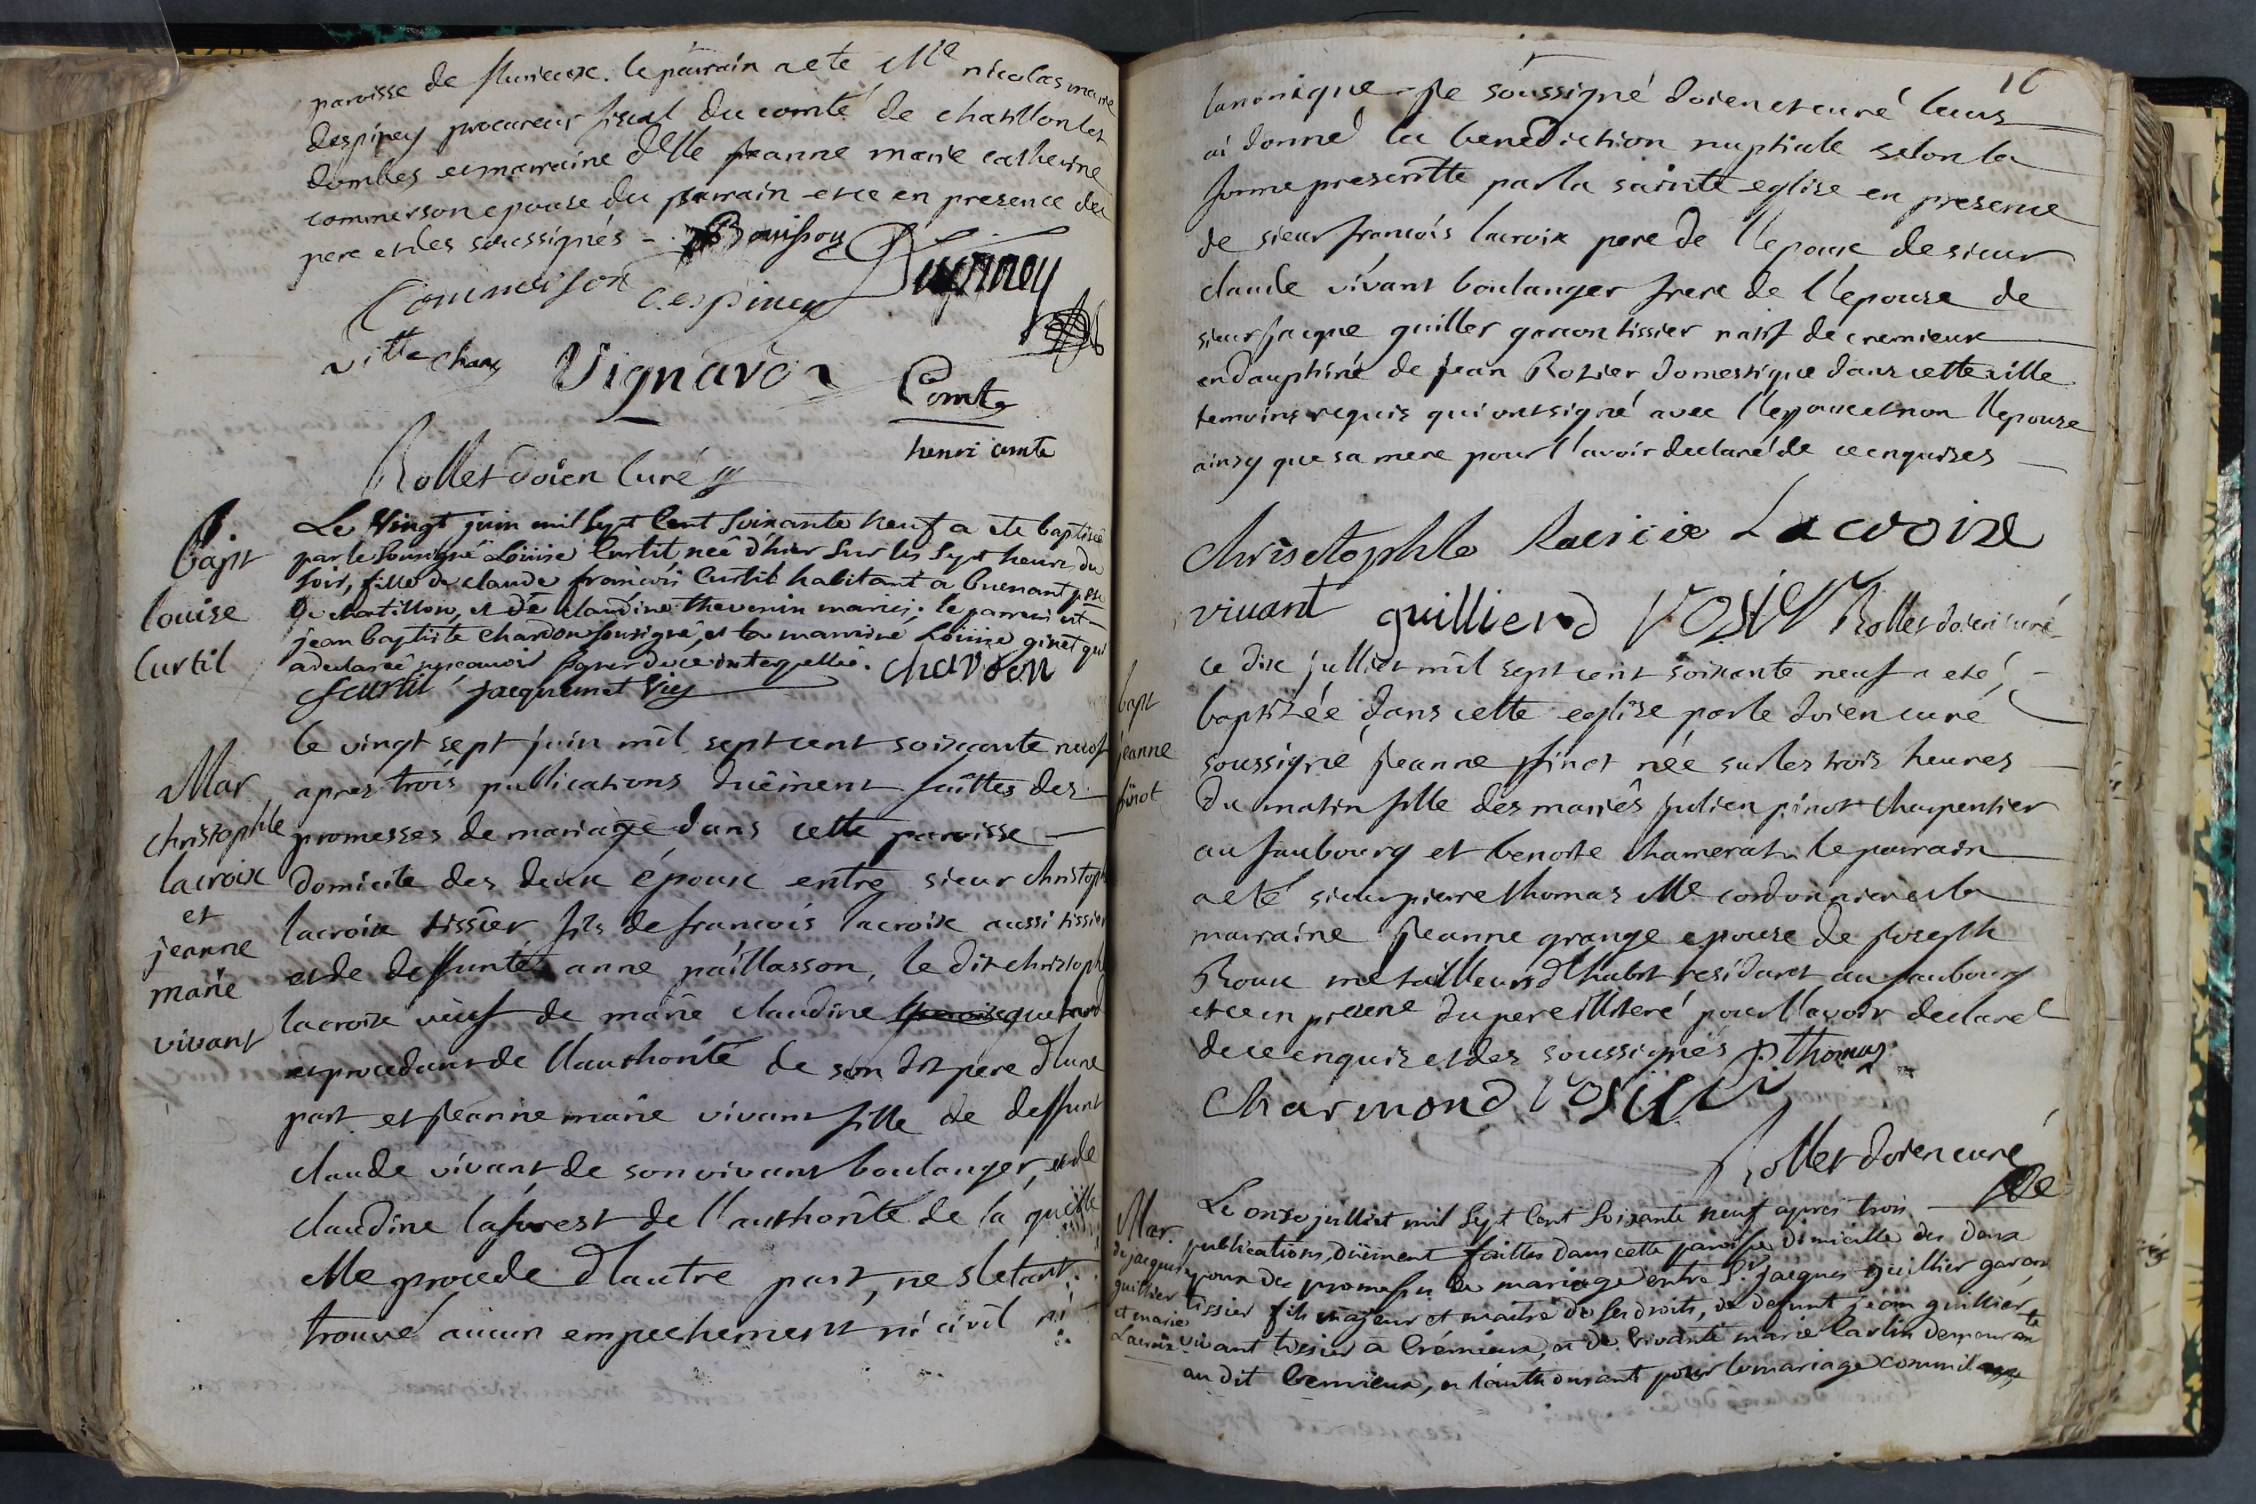 paroisse de flurieux. le parrain a eté Mre nicolas marie
despiney procureur fiscal du comté de chatillon les
dombes et marraine delle jeanne marie catherine
commerson epouse du parrain et ce en presence du
pere et des soussignés -
Commerson despiney
Vignard
Comte
henri comte
Rollet doien Curé
Bapt
louise
Curtil
Le Vingt juin mil Sept Cent Soixante neuf a ete baptisée
par le Sousigné Loüise Curtil neê d'hier Sur les Sept heures du
Soir, fille de claude francois Curtil habitant a buenant psse
de chatillon, et de claudine thevenin mariés. le parrain est
jean baptiste chardon Sousigné, et la marrine Loüise ginet qui
a declareé ne scavoir signer de ce interpellée. chardon
fcurtil jacquemet Vic
Mar
christophle
lacroix
et
jeanne
marie
vivant
le vingt sept juin mil sept cent soixante neuf
apres trois publications duëment faittes des
promesses de mariage dans cette paroisse
domicile des deux époux entre sieur christoph
lacroix tissier fils de francois lacroix aussi tissier
et de deffunte anne paillasson, le dit christoph
lacroix veuf de marie claudine
et procedant de l'authorité de son dit pere d'une
part et jeanne marie vivant fille de deffunt
claude vivant de son vivant boulanger, et de
claudine laforest de l'authorité de la quelle
elle procede d'autre part, ne s'etant
trouvé aucun empechement ni civil ni
16
canonique je soussigné doien et curé leurs
ai donné la benediction nuptiale selon la
forme prescritte par la sainte eglise en presence
de sieur francois lacroix pere de l'epoux de sieur
claude vivant boulanger frere de l'epouse de
sieur jacque guillier garcon tissier natif de cremieux
en dauphiné de jean Rozier domestique dans cette ville
temoins requis qui ont signé avec l'epoux et non l'epouse
ainsy que sa mere pour l'avoir declaré de ce enquises
christophle lacroix Lacroix
vivant guillierd rosier Rollet doien curé
bapt
jeanne
pinot
ce dix julliet mil sept cent soixante neuf a eté
baptizée dans cette eglise par le doien curé
soussigné jeanne pinot née sur les trois heures
du matin fille des mariés julien pinot charpentier
au faubourg et benoite chamerat le parrain
a eté sieur pierre thomas Me cordonnier et la
marraine jeanne grange epouse de joseph
Roux me tailleur d'habit residant au faubourg
et ce en presence du pere illiteré pour l'avoir declaré
de ce enquis et des soussignés p. thomas
charmond rosier
Rollet doien curé
Mar.
de jacques
guillier
et marie
Lacroix
Le onze julliet mil Sept Cent Soixante neuf apres trois
publications, duëment faittes dans cette paroisse domicille des deux
epoux des promesses de mariage entre Sr. jacques guillier garcon
tissier fils majeur et maitre de Ses droits, de defunt jean guillier,
vivant tissier a Crémieux, et de vivante marie Carlin demeurante
au dit Cremieux, et l'authorisant pour le mariage comme